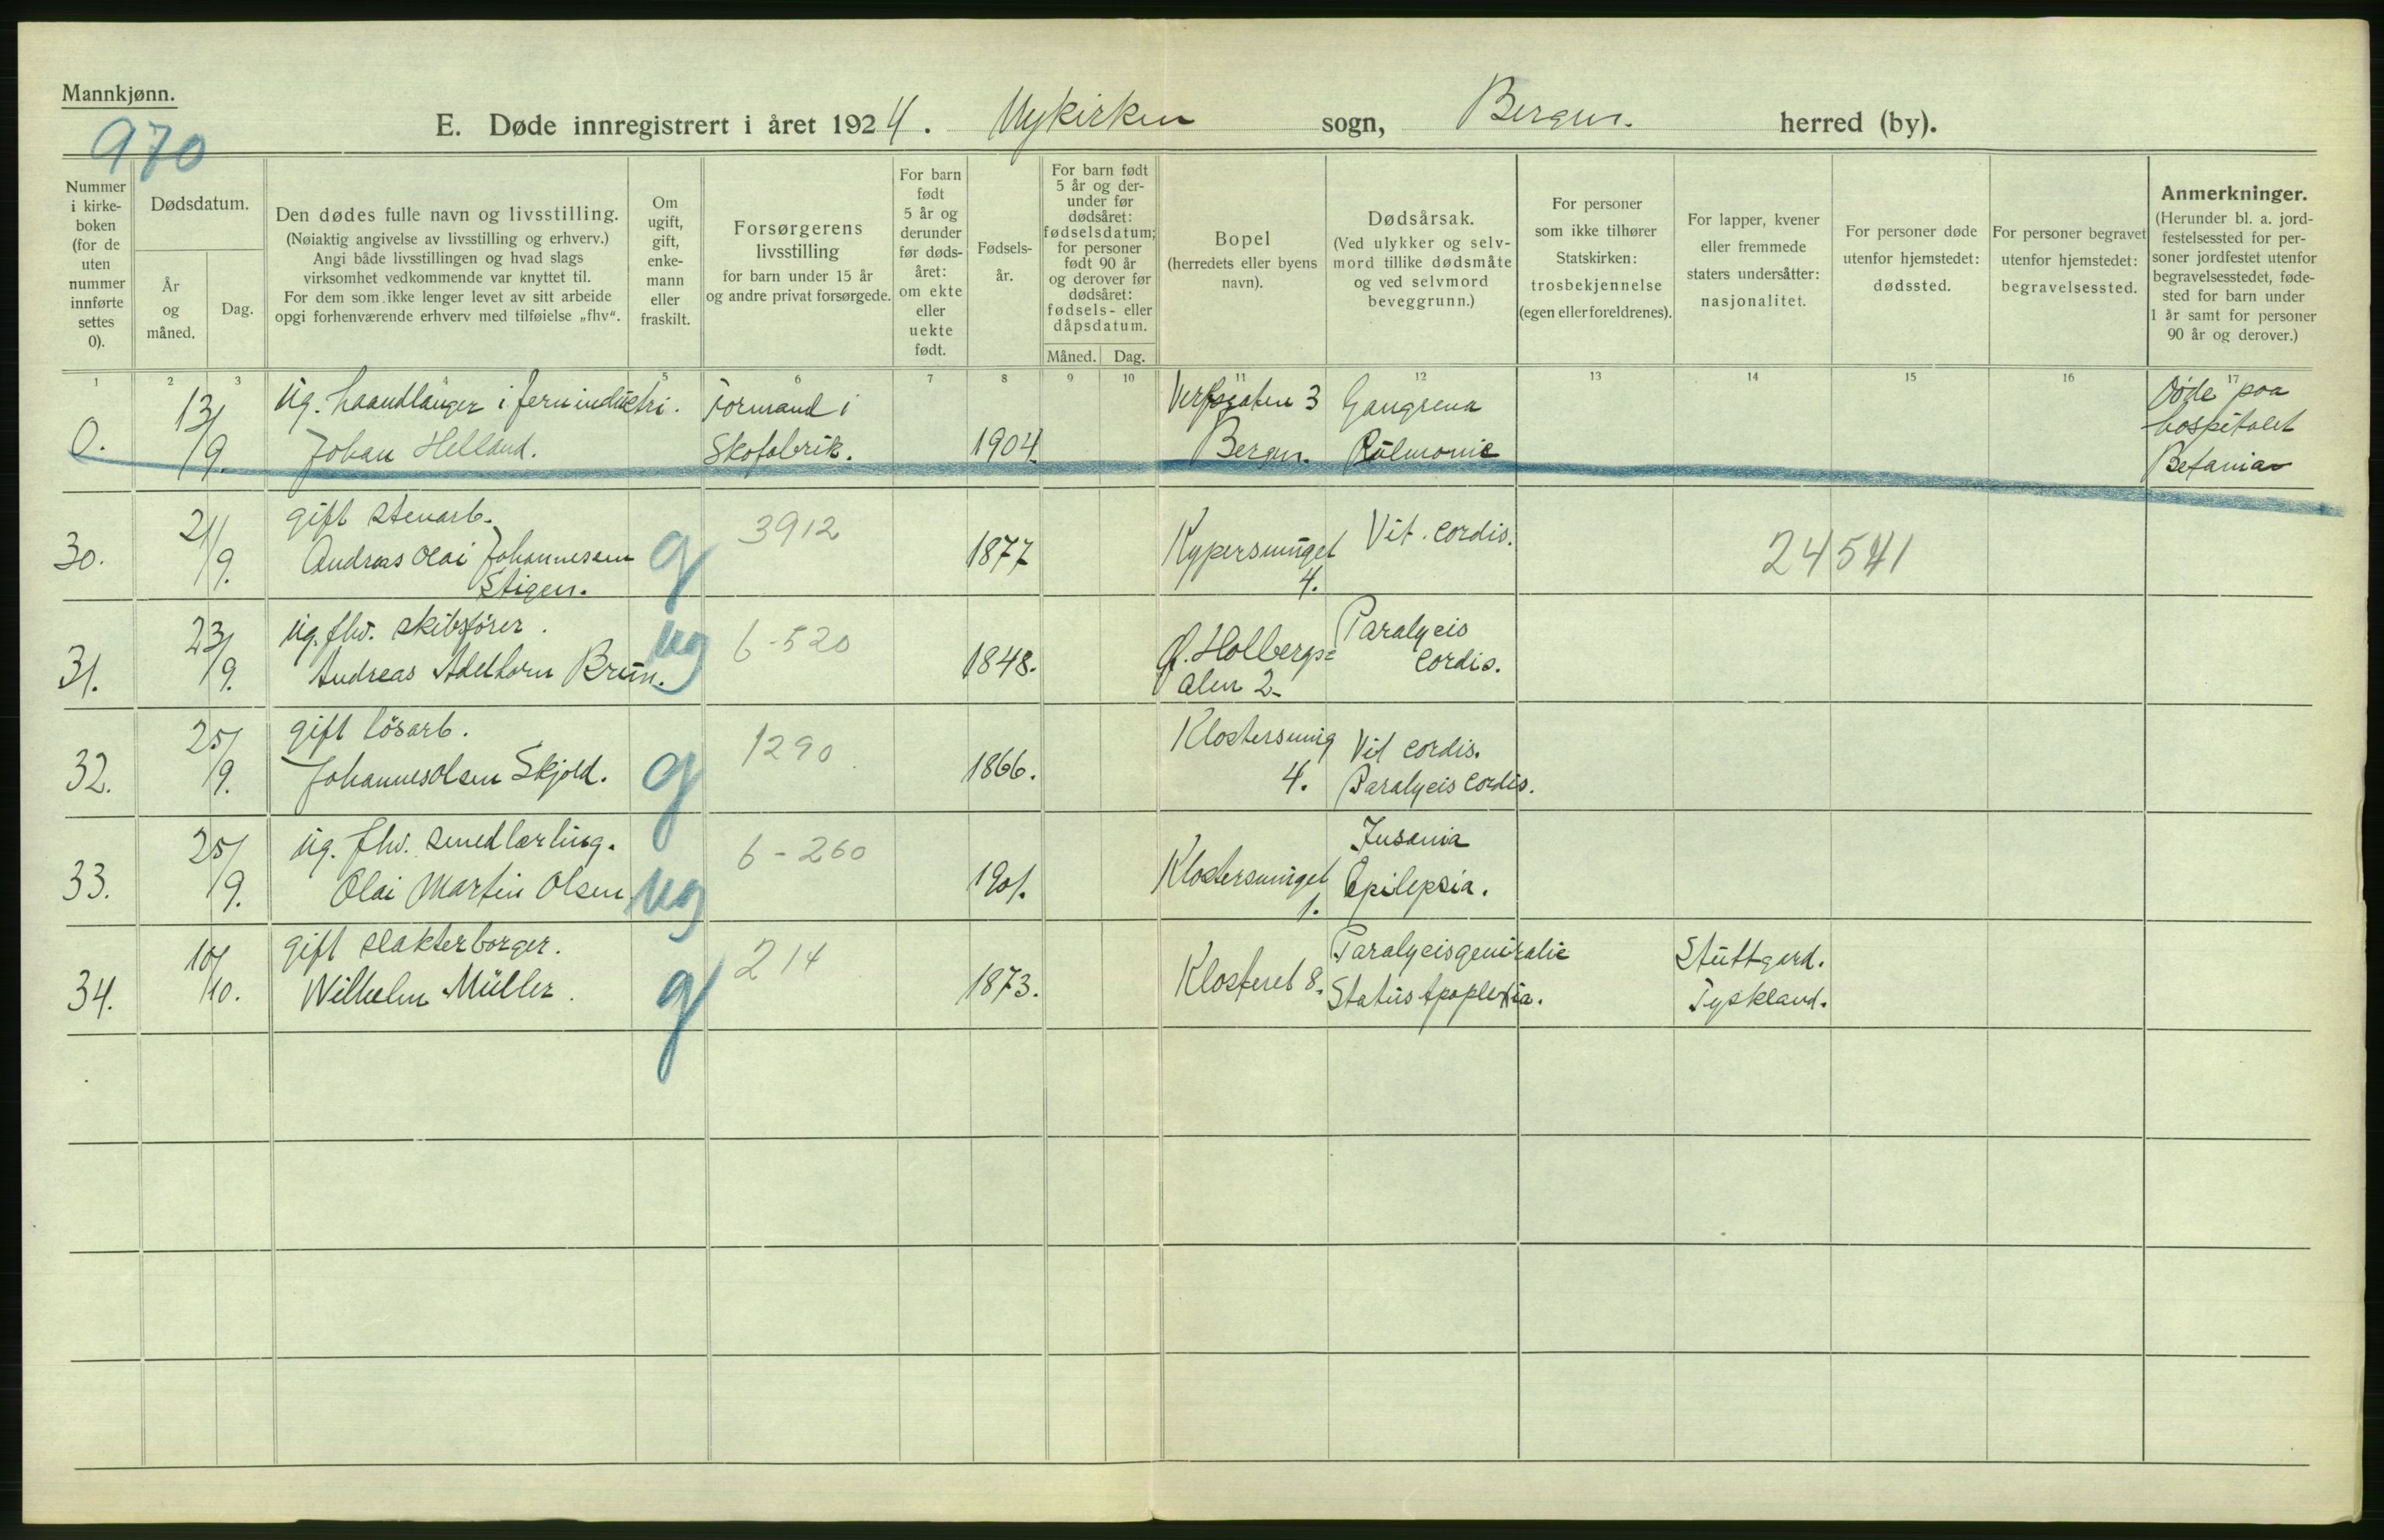 Mannkjønn.
970
E. Døde innregistrert i året 1924. Nykirken sogn, Bergen. herred (by).
Nummer i kirke- boken (for de uten nummer innførte settes 0).
Dødsdatum.
År og måned.
Dag.
Den dødes fulle navn og livsstilling.
(Nøiaktig angivelse av livsstilling og erhverv.)
Angi både livsstillingen og hvad slags
virksomhet vedkommende var knyttet til.
For dem som ikke lenger levet av sitt arbeide
opgi forhenværende erhverv med tilføielse „fhv“.
Om ugift, gift, enke- mann eller fraskilt.
Forsørgerens
livsstilling
for barn under 15 år
og andre privat forsørgede.
For barn født 5 år og derunder før døds- året: om ekte eller uekte født.
Fødsels- år.
For barn født 5 år og der- under før dødsåret: fødselsdatum; for personer født 90 år og derover før dødsåret: fødsels- eller dåpsdatum.
Måned. Dag.
Bopel
(herredets eller byens
navn).
Dødsårsak.
(Ved ulykker og selv-
mord tillike dødsmåte
og ved selvmord
beveggrunn.)
For personer
som ikke tilhører
Statskirken:
trosbekjennelse
(egen eller foreldrenes).
For lapper, kvener
eller fremmede
staters undersåtter:
nasjonalitet.
For personer døde
utenfor hjemstedet:
dødssted.
For personer begravet
utenfor hjemstedet:
begravelsessted.
Anmerkninger.
(Herunder bl. a. jord-
festelsessted for per-
soner jordfestet utenfor
begravelsesstedet, føde-
sted for barn under
1 år samt for personer
90 år og derover.)
1 2 3 5 6 7 8 9 10 11 12 13 14 15 16 17
0. 13/9. ug. haandlanger i jernindustri.
Johan Helland.
Formand i
Skofabrik.
1904.
Verfsgaten 3
Bergen.
Gangrena
Pulmonis
Døde paa
hospitalet
Betania
30. 21/9. gift stenarb.
Andreas Olai Johannesen
Stigen.
g 3912 1877
Kypersmuget
4.
Vit. cordis.
24541
31. 23/9. ug. fhv. skibsfører.
Andreas Adelhorn Brun.
ug 6-520 1848.
Q. Holbergs=
alm 2-
Paralysis
cordis.
32. 25/9. gift løsarb.
Johannes Olsen Skjold.
g 1290. 1866.
Klostersmug
4.
Vit cordis.
Paralysis cordis.
33. 25/9. ug. fhv. smedlærling.
Olai Martin Olsen
ug 6-260 1901.
Klostersmuget
1.
Insania
Epilepsia.
34. 10/10. gift slakterborger.
Wilhelm Müller.
g 214 1873.
Klosteret 8.
Paralysis generalis
Status Apoplexia.
Stuttgard.
Tyskland.